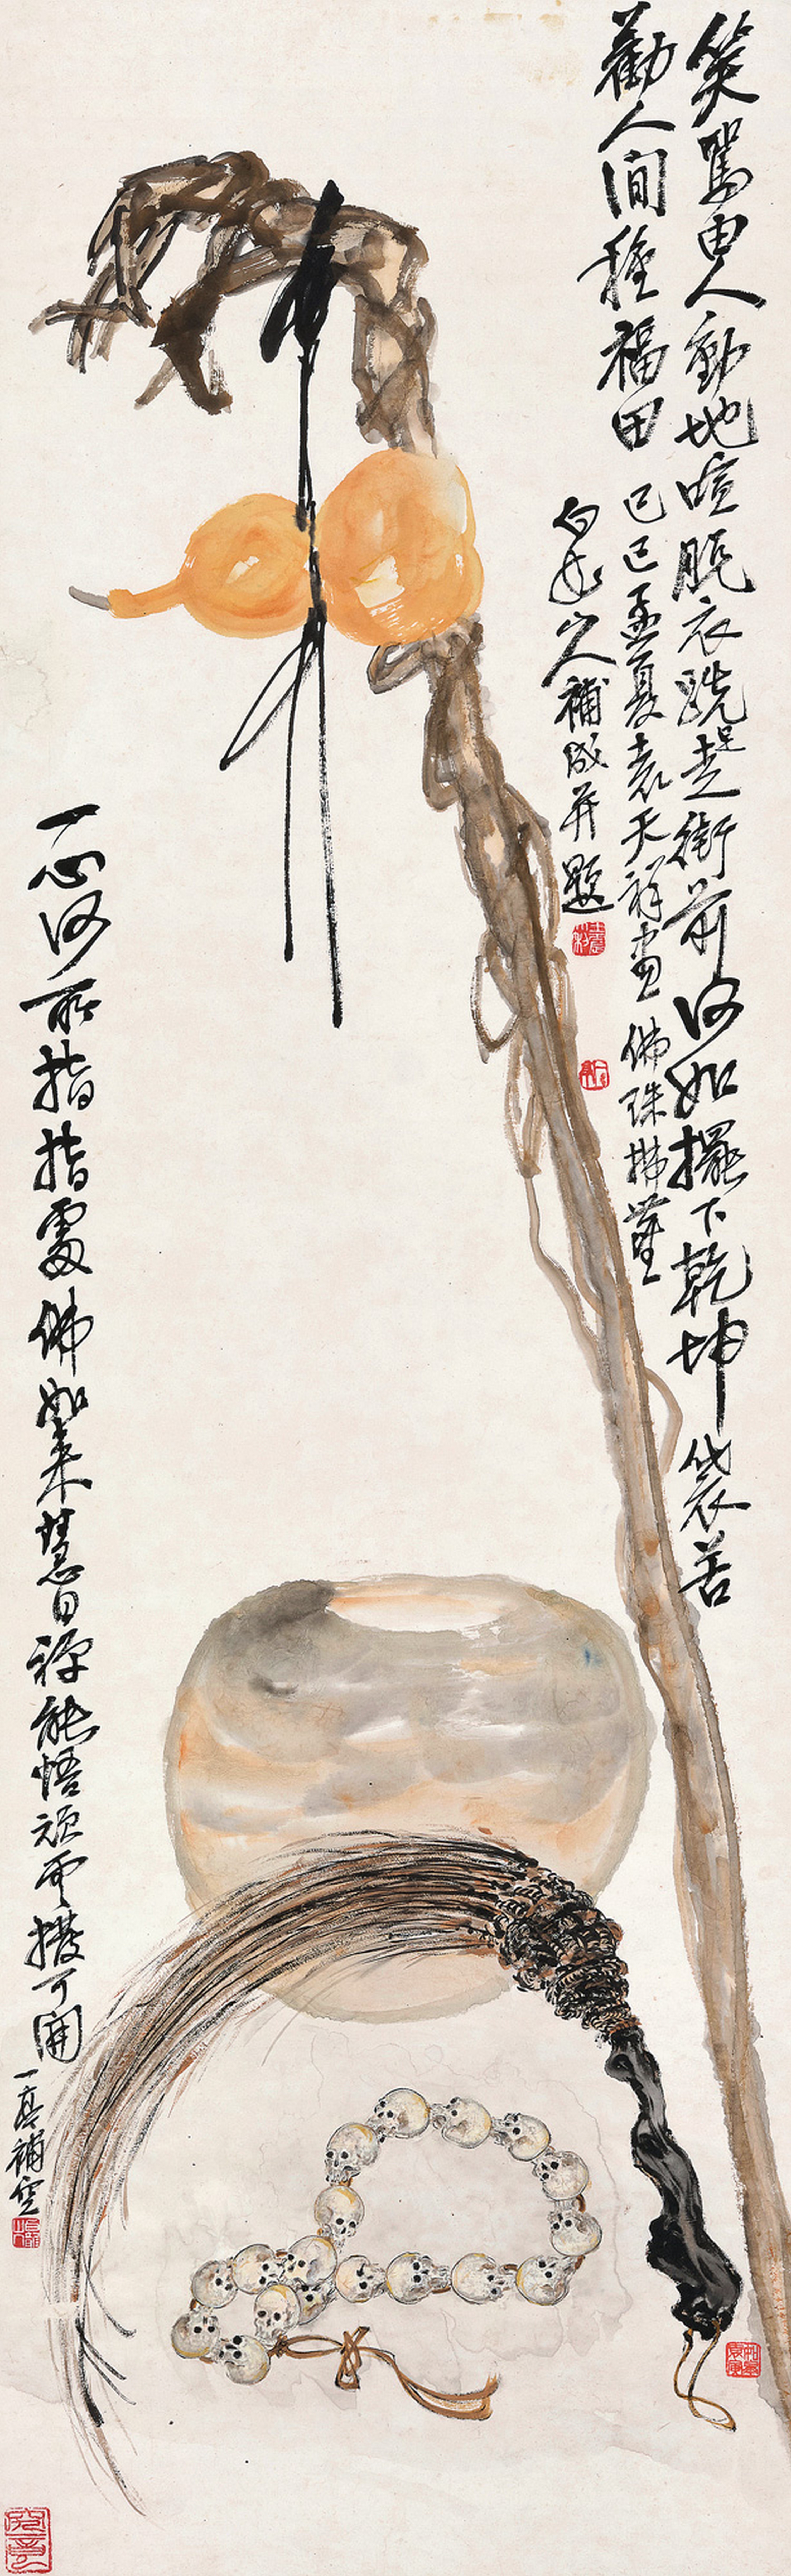 笑罵由人動地喧脫衣跣足走街前何如擺下乾坤袋苦
勸人間種福田 己巳孟夏袁天祥畫佛珠拂塵
白龍山人補成并題
一心何所指指處佛如來慧日禪能悟頑雲撥可開
一亭補空